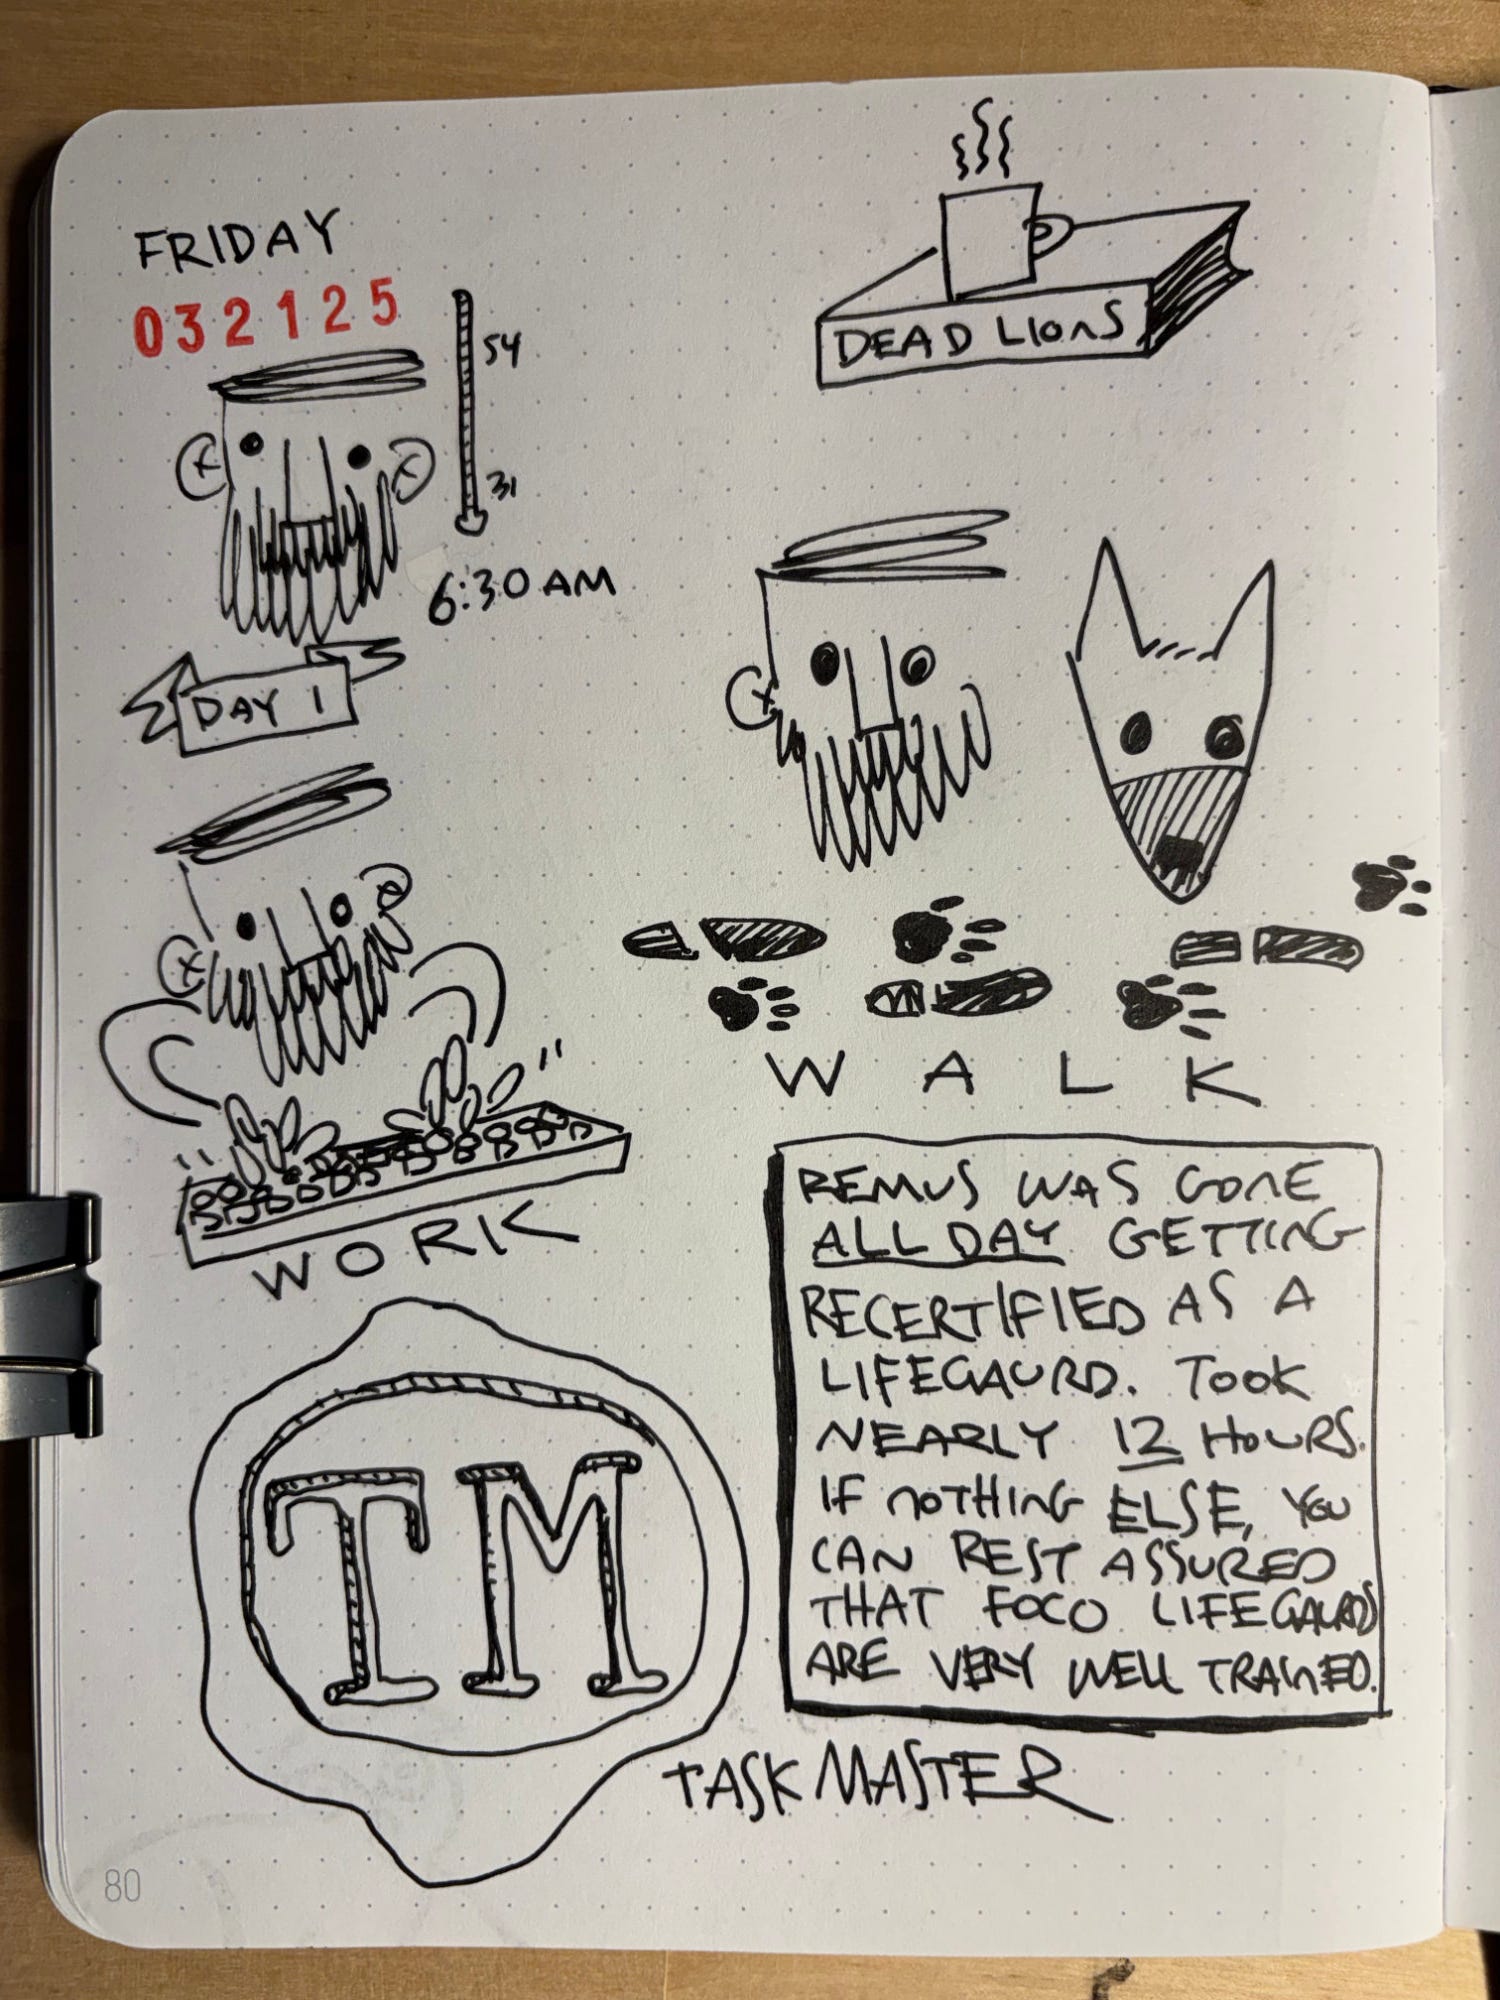 FRIDAY
032125
54
31
6:30 AM
DAY 1
DEAD LIONS
WORK
WALK
REMUS WAS GONE
ALL DAY GETTING
RECERTIFIED AS A
LIFEGAURD. TOOK
NEARLY 12 HOURS.
IF NOTHING ELSE, YOU
CAN REST ASSURED
THAT FOCO LIFEGAURDS
ARE VERY WELL TRAINED.
TM
TASKMASTER
80